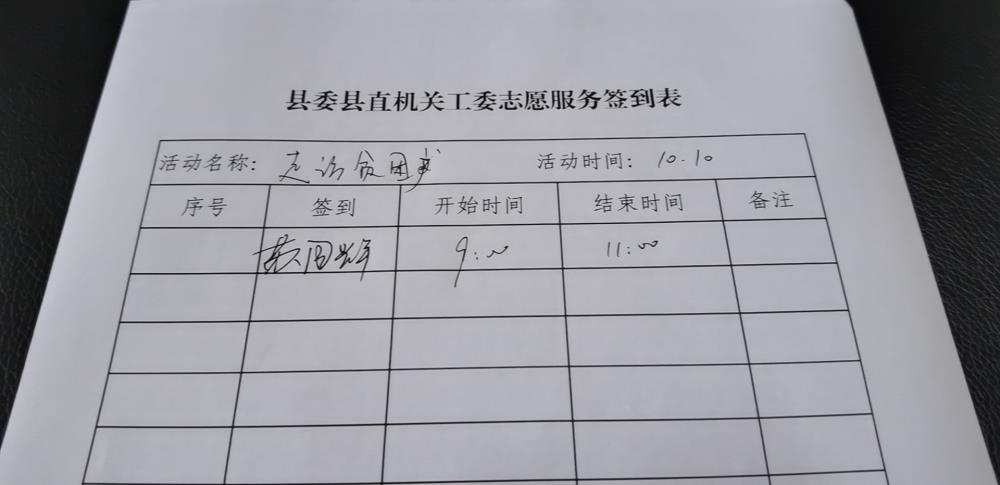 县委县直机关工委志愿服务签到表
活动名称: 走访贫困户 活动时间: 10.10
序号 签到 开始时间 结束时间 备注
9:00 11:00